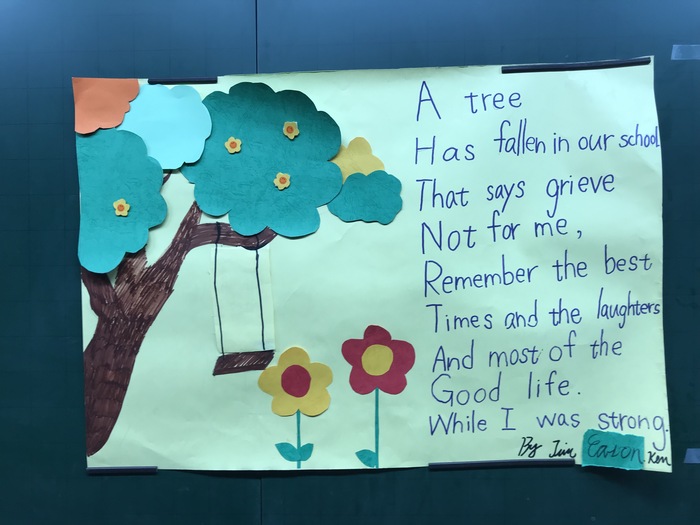 A tree
Has fallen in our school
That says grieve
Not for me,
Remember the best
Times and the laughters
And most of the
Good life.
While I was strong.
By Jim Eason Ken